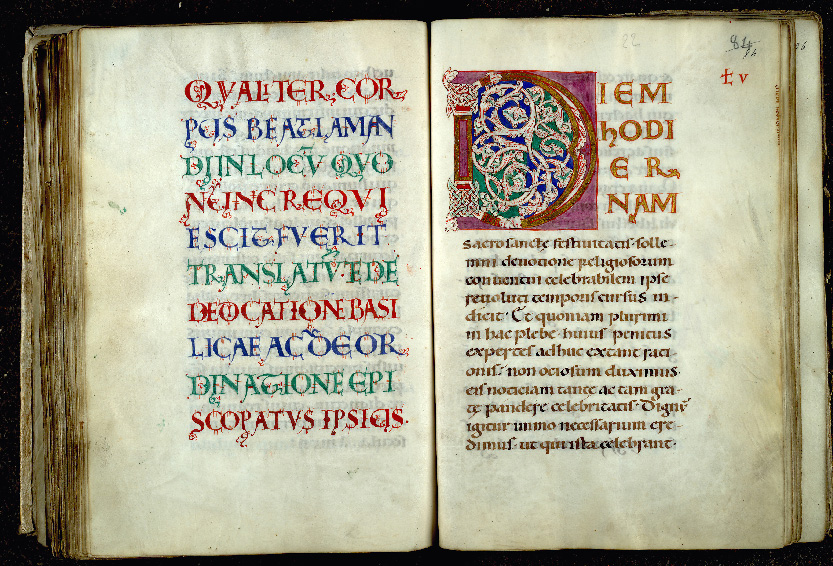 QVALITER COR
PUS BEATI AMAN
DI IN LOCŪ QVO
NUNC REQVI
ESCIT FVERIT
TRANSLATV̄ ET DE
DEDICATIONE BASI
LICAE AC DE OR
DINATIONE EPI
SCOPATVS IPSIUS.
84
DIEM
HODI
ER
NAM
sacrosancte festiuitatis solle-
mni deuotione religiosorum
conuentui celebrabilem ipse
reuoluti temporis cursus in-
dicit. Et quoniam plurimi
in hac plebe huius penitus
expertes adhuc extant raci-
onis. non ociosum duximus
eis noticiam tante ac tam gra-
te pandere celebritatis. Dignū
igitur immo necessarium cre-
dimus. ut qui ista celebrant.